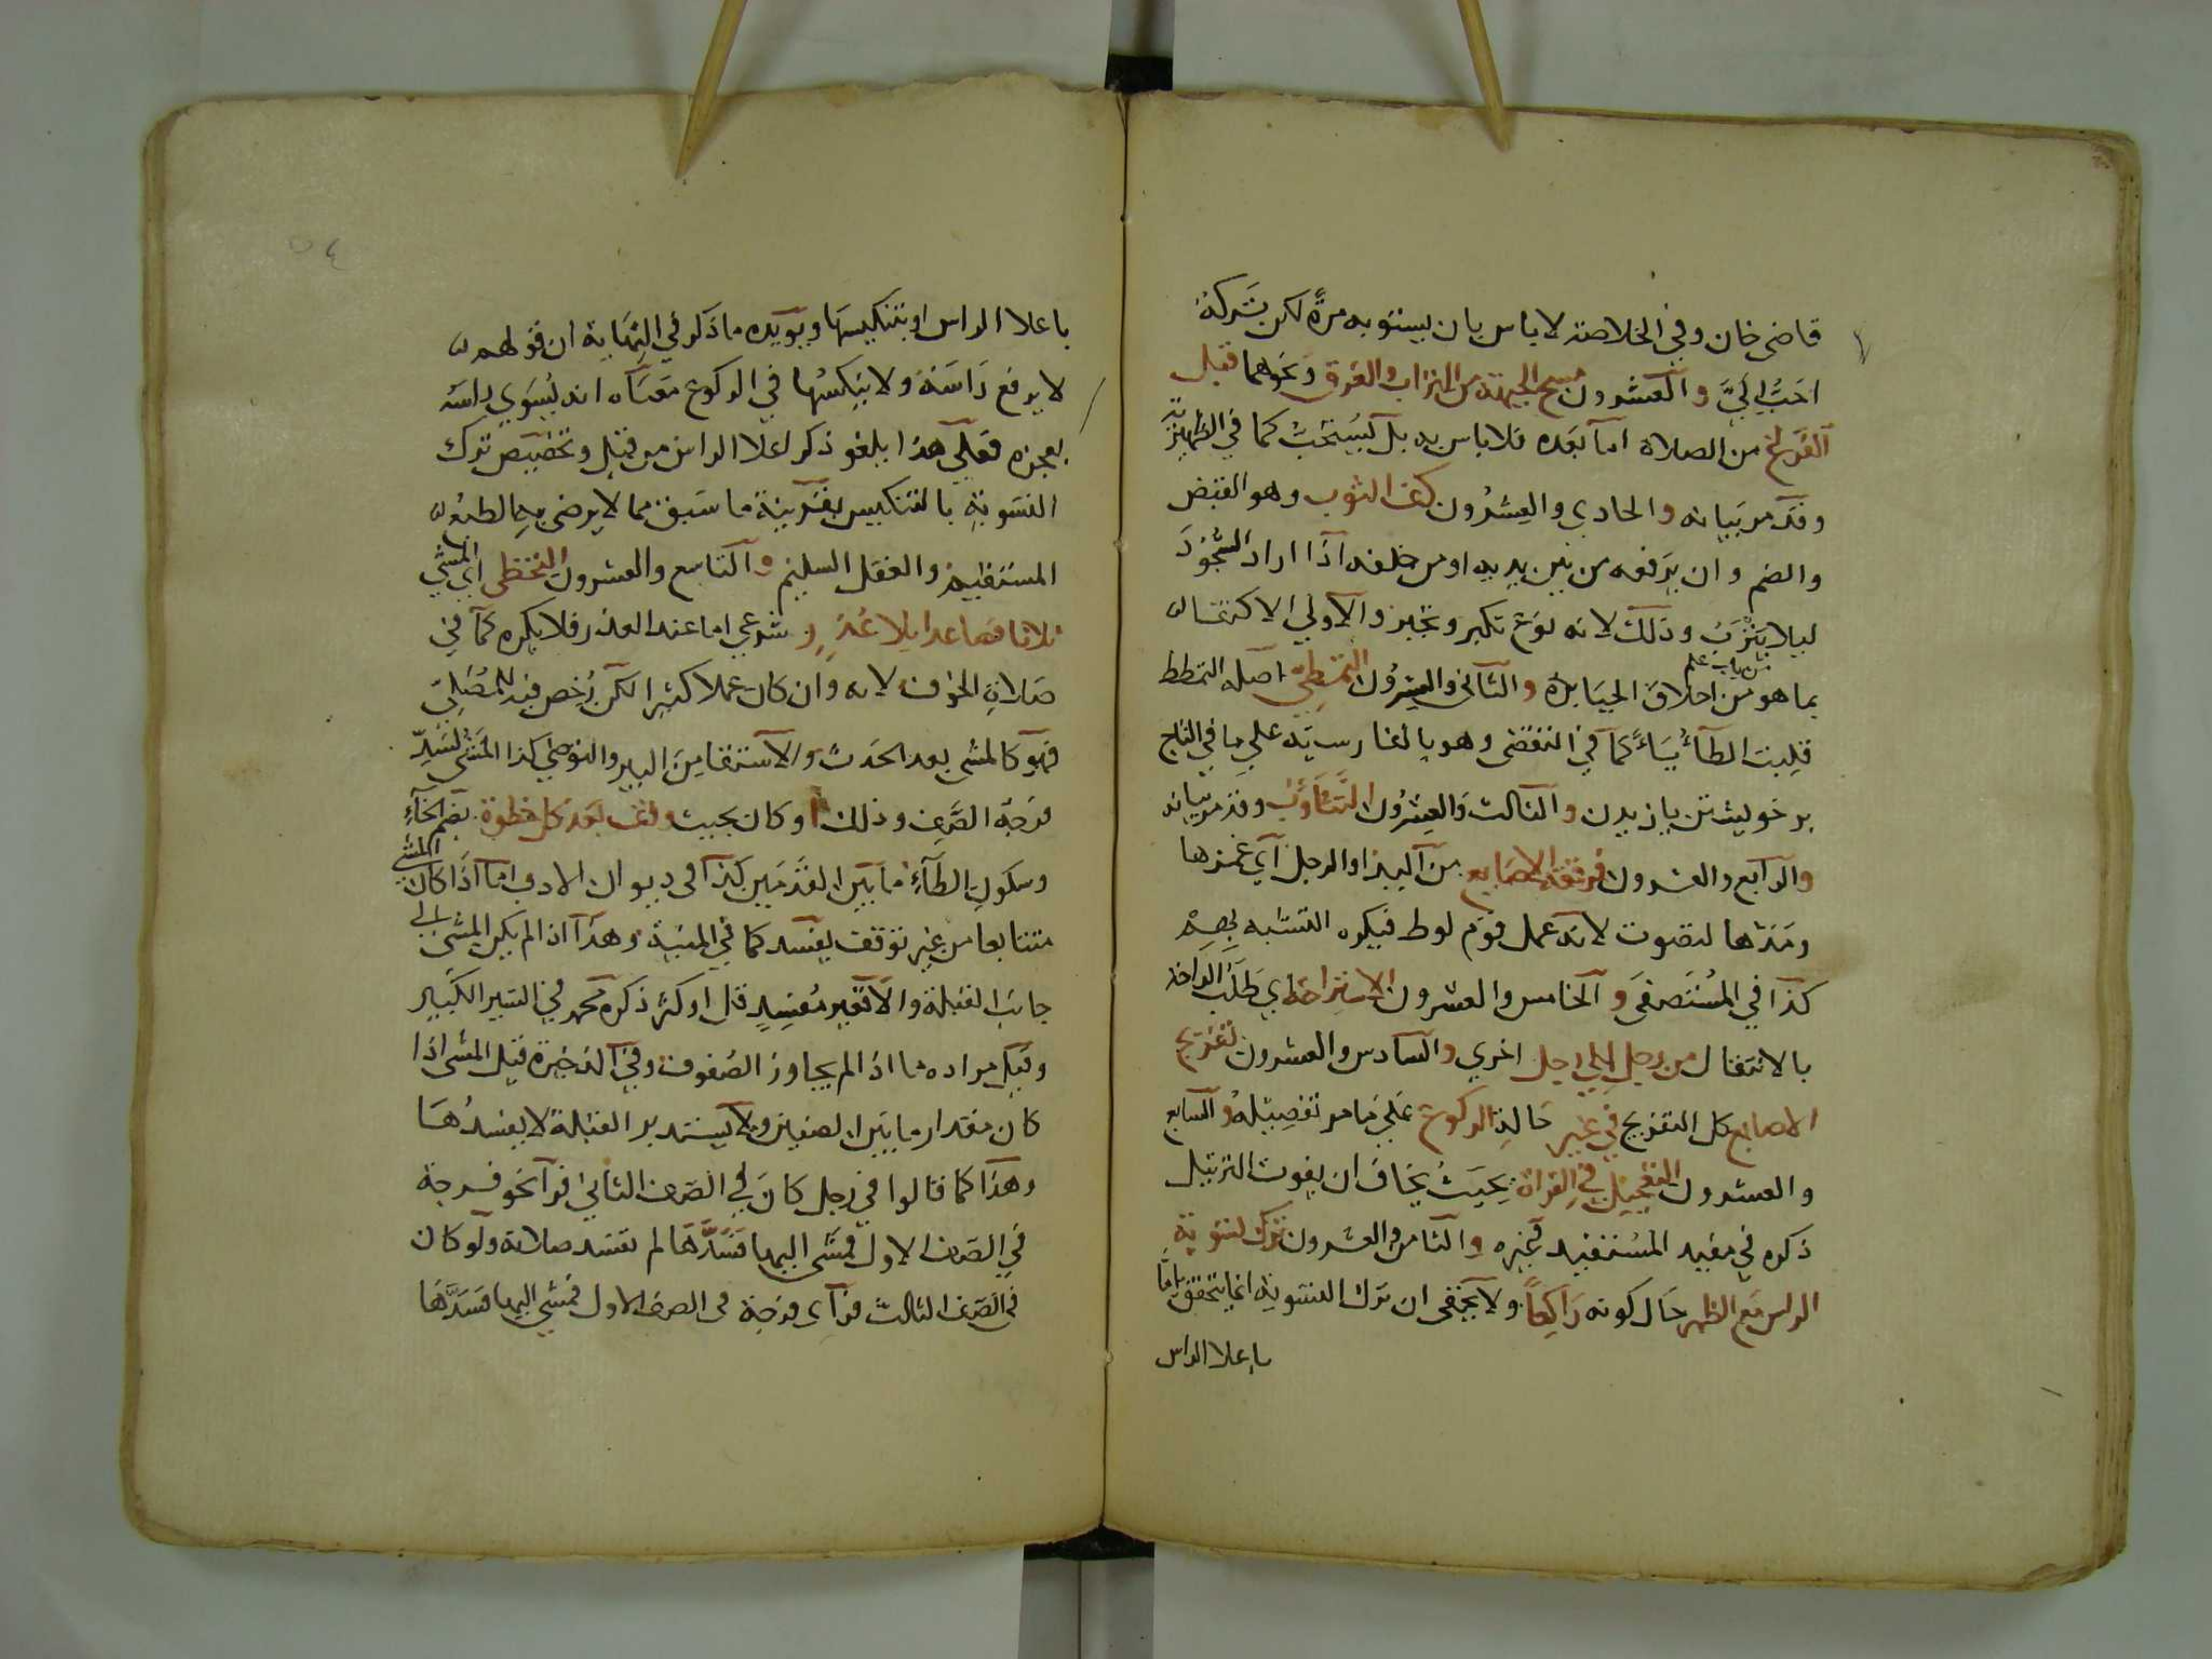 قاضي خان وفي الخلاصة لا باس بان يستوبه مرة لكن تركه
احب الي والعشرون مسح الجبهة من التراب والعرق ونحوهما قبل
الفراغ من الصلاة اما بعده فلا باس به بل يستحب كما في الظهيرية
وقد مر بيانه والحادي والعشرون كف الثوب وهو القبض
والضم وان يرفعه من بين يديه او من خلفه اذا اراد السجود
ليلا يتترب وذلك لانه نوع تكبر وتجبر والاولى الاكتفا
بما هو من اخلاق الجبابرة والثاني والعشرون التمطي اصله التمطط
قلبت الطاء ياء كما في التقضي وهو بالفارسية على ما في التاج
بر خويشتن يازيدن والثالث والعشرون التثاوب وقد مر بيانه
والرابع والعشرون فرقعة الاصابع من اليد او الرجل اي غمزها
ومدها لتصوت لانه عمل قوم لوط فيكره التشبه بهم
كذا في المستصفى والخامس والعشرون الاستراحة اي طلب الراحة
بالانتقال من رجل الى رجل اخرى والسادس والعشرون تفريج
الاصابع كل التفريج في غير حالة الركوع على ما مر تفصيله والسابع
والعشرون التعجيل في القراة بحيث يخاف ان يفوت الترتيل
ذكره في مفيد المستفيد وغيره والثامن والعشرون ترك تسوية
الراس مع الظهر حال كونه راكعا ولا يخفى ان ترك التسوية انما يتحقق اما
باعلا الراس
٥٤
باعلا الراس او بتنكيسها ويويده ما ذكر في النهاية ان قولهم
لا يرفع راسه ولا ينكسها في الركوع معناه انه يسوي راسه
بعجزه فعلى هذا يلغو ذكر اعلا الراس من قبل وتخصيص ترك
التسوية بالتنكيس بقرينة ما سبق مما لا يرضى به الطبع
المستقيم والعقل السليم والتاسع والعشرون التخطي اي المشي
ثلاثا فصاعدا بلا عذر شرعي اما عند العذر فلا يكره كما في
صلاة الخوف لانه وان كان عملا كثيرا لكن رخص فيه للمصلي
فهو كالمشي بعد الحدث والاستقا من البير والتوضي كذا المشي لسد
فرجة الصف وذلك او كان بحيث وقف بعد كل خطوة بضم الخاء
وسكون الطاء ما بين القدمين كذا في ديوان الادب اما اذا كان المشي
متتابعا من غير توقف يفسد كما في المنية وهذا اذا لم يكن المشي الى
جانب القبلة والا فغير مفسد قل او كثر ذكره محمد في السير الكبير
وقيل مراده ما اذا لم يجاوز الصفوف وفي الذخيرة قيل المشي اذا
كان مقدار ما بين الصفين ولا يستدبر القبلة لا يفسدها
وهذا كما قالوا في رجل كان في الصف الثاني فراى نحو فرجة
في الصف الاول فمشى اليها فسدها لم تفسد صلاته ولو كان
في الصف الثالث فراى فرجة في الصف الاول فمشى اليها فسدها